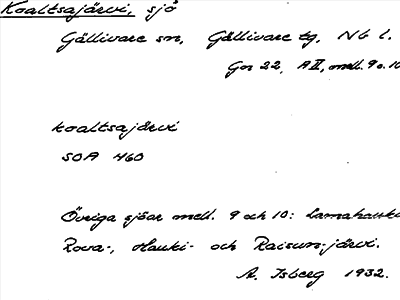 Koaltsajärvi, sjö
Gällivare sn, Gällivare tg, Nb l.
Gor 22, A II, mell. 9 o. 10
koaltsajärvi
SOA 460
Övriga sjöar mell. 9 och 10:
Rova-, Hauki- och Raisun-järvi.
A. Isberg 1932.